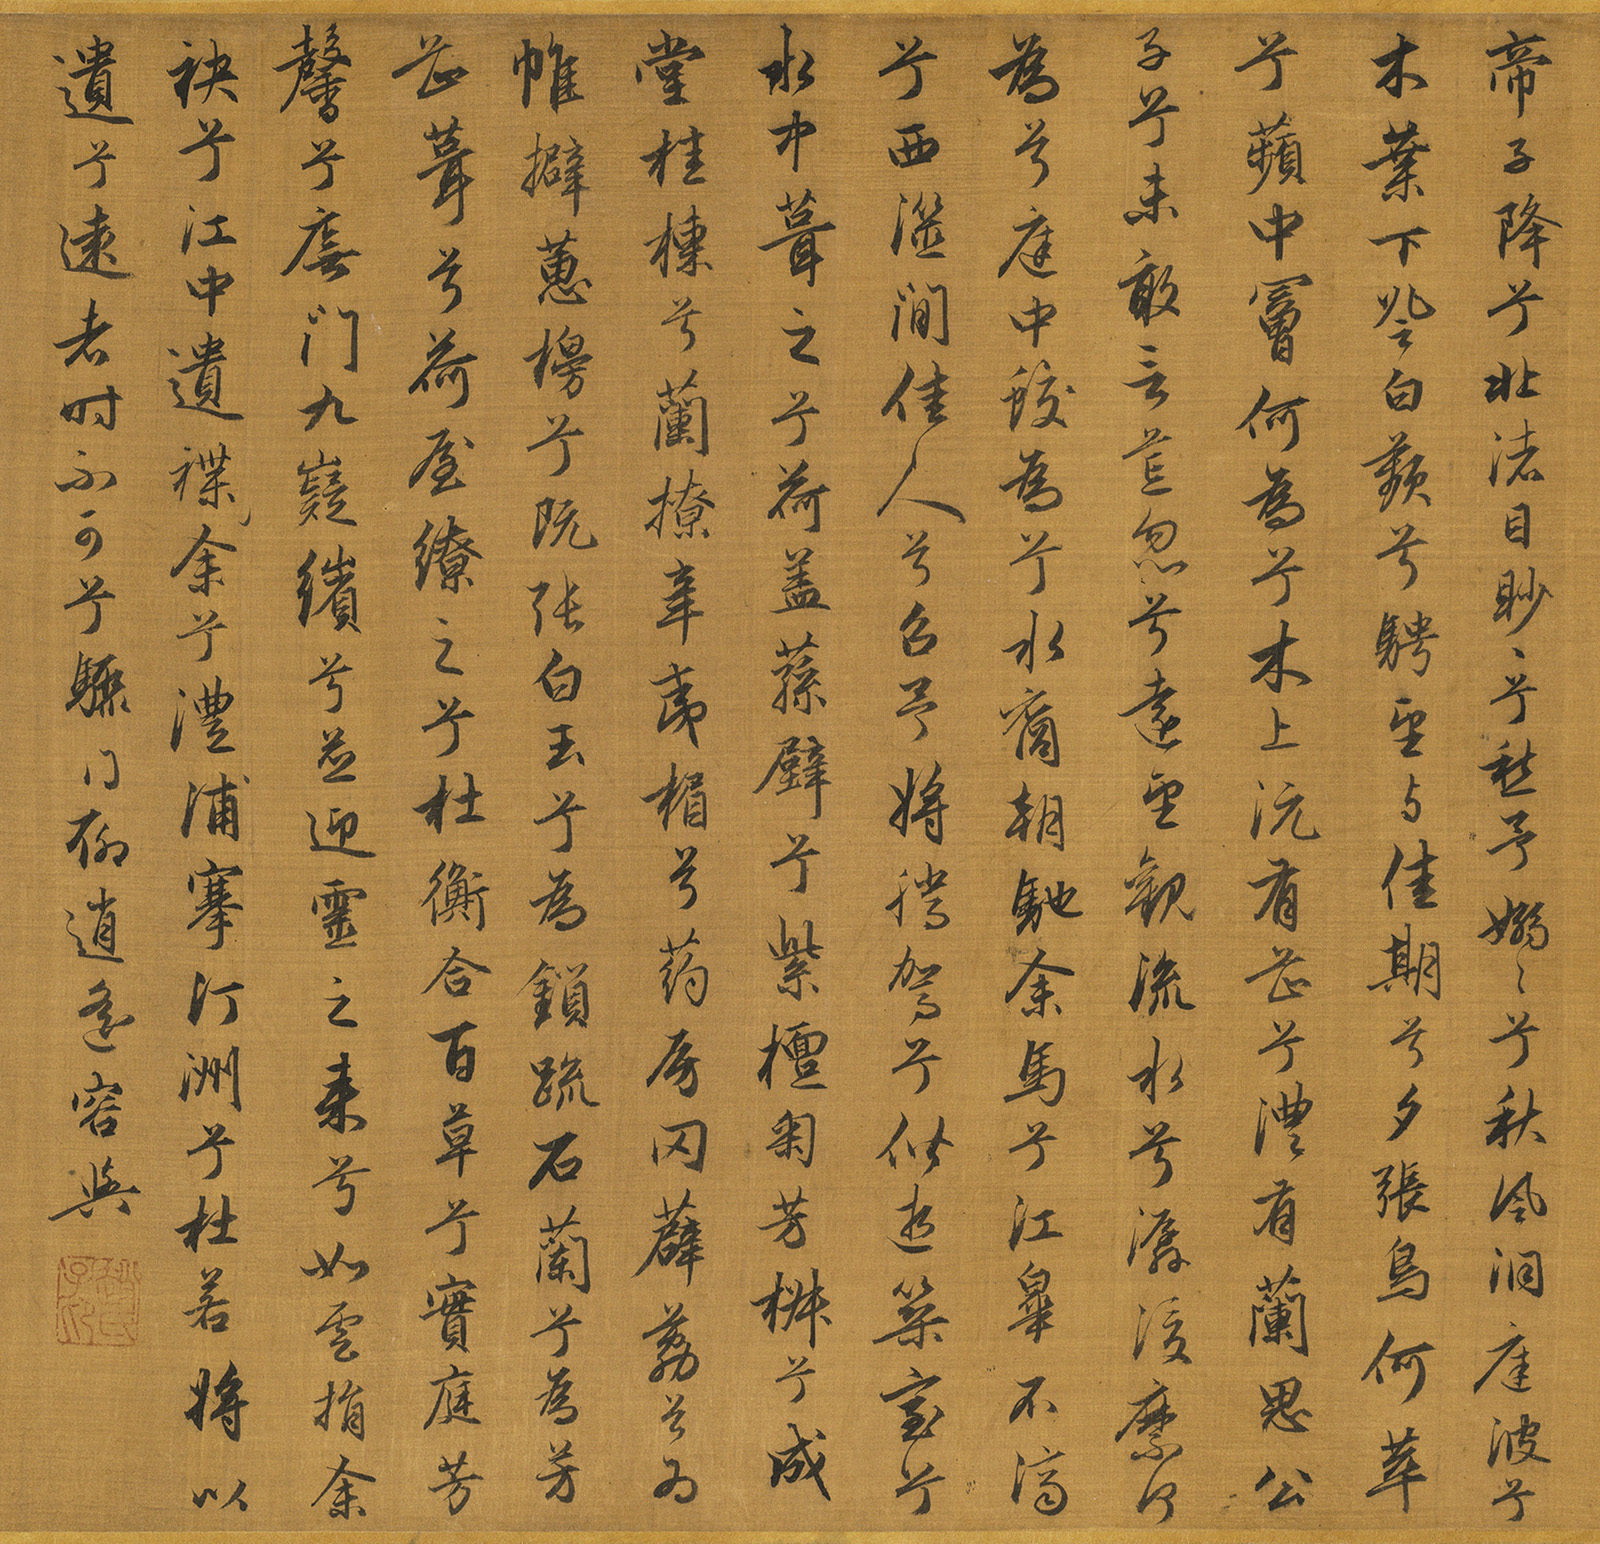 帝子降兮北渚目眇〻兮愁予嫋〻兮秋風洞庭波兮
木葉下登白薠兮騁望与佳期兮夕張鳥何萃
兮蘋中罾何為兮木上沅有芷兮澧有蘭思公
子兮未敢言荒忽兮遠望觀流水兮潺湲麋何
為兮庭中蛟為兮水裔朝馳余馬兮江皋不濟
兮西澨聞佳人兮召予將騰駕兮偕逝築室兮
水中葺之兮荷蓋蓀壁兮紫檀匊芳椒兮成
堂桂棟兮蘭橑辛夷楣兮葯房罔薜荔兮為
帷擗蕙櫋兮既張白玉兮為鎮疏石蘭兮為芳
芷葺兮荷屋繚之兮杜衡合百草兮實庭芳
馨兮廡門九嶷繽兮並迎靈之來兮如雲捐余
袂兮江中遺褋余兮澧浦搴汀洲兮杜若將以
遺兮遠者時不可兮驟得聊逍遙容與
趙氏子昂